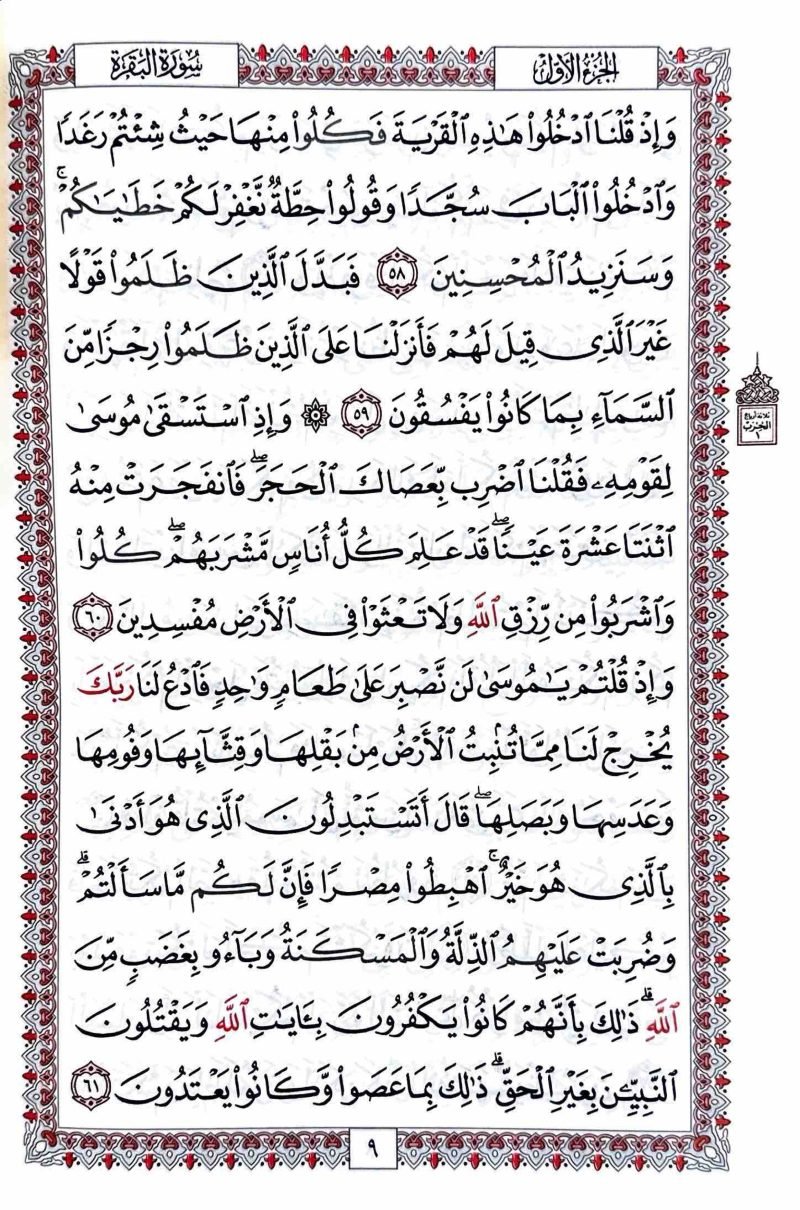 الجزء الأول
سورة البقرة
وَإِذْ قُلْنَا ٱدْخُلُوا۟ هَٰذِهِ ٱلْقَرْيَةَ فَكُلُوا۟ مِنْهَا حَيْثُ شِئْتُمْ رَغَدًا
وَٱدْخُلُوا۟ ٱلْبَابَ سُجَّدًا وَقُولُوا۟ حِطَّةٌ نَّغْفِرْ لَكُمْ خَطَٰيَٰكُمْ ۚ
وَسَنَزِيدُ ٱلْمُحْسِنِينَ ٥٨ فَبَدَّلَ ٱلَّذِينَ ظَلَمُوا۟ قَوْلًا
غَيْرَ ٱلَّذِى قِيلَ لَهُمْ فَأَنزَلْنَا عَلَى ٱلَّذِينَ ظَلَمُوا۟ رِجْزًا مِّنَ
ٱلسَّمَآءِ بِمَا كَانُوا۟ يَفْسُقُونَ ٥٩ ۞ وَإِذِ ٱسْتَسْقَىٰ مُوسَىٰ
لِقَوْمِهِۦ فَقُلْنَا ٱضْرِب بِّعَصَاكَ ٱلْحَجَرَ ۖ فَٱنفَجَرَتْ مِنْهُ
ٱثْنَتَا عَشْرَةَ عَيْنًا ۖ قَدْ عَلِمَ كُلُّ أُنَاسٍ مَّشْرَبَهُمْ ۖ كُلُوا۟
وَٱشْرَبُوا۟ مِن رِّزْقِ ٱللَّهِ وَلَا تَعْثَوْا۟ فِى ٱلْأَرْضِ مُفْسِدِينَ ٦٠
وَإِذْ قُلْتُمْ يَٰمُوسَىٰ لَن نَّصْبِرَ عَلَىٰ طَعَامٍ وَٰحِدٍ فَٱدْعُ لَنَا رَبَّكَ
يُخْرِجْ لَنَا مِمَّا تُنۢبِتُ ٱلْأَرْضُ مِنۢ بَقْلِهَا وَقِثَّآئِهَا وَفُومِهَا
وَعَدَسِهَا وَبَصَلِهَا ۖ قَالَ أَتَسْتَبْدِلُونَ ٱلَّذِى هُوَ أَدْنَىٰ
بِٱلَّذِى هُوَ خَيْرٌ ۚ ٱهْبِطُوا۟ مِصْرًا فَإِنَّ لَكُم مَّا سَأَلْتُمْ ۗ
وَضُرِبَتْ عَلَيْهِمُ ٱلذِّلَّةُ وَٱلْمَسْكَنَةُ وَبَآءُو بِغَضَبٍ مِّنَ
ٱللَّهِ ۗ ذَٰلِكَ بِأَنَّهُمْ كَانُوا۟ يَكْفُرُونَ بِـَٔايَٰتِ ٱللَّهِ وَيَقْتُلُونَ
ٱلنَّبِيِّـۧنَ بِغَيْرِ ٱلْحَقِّ ۗ ذَٰلِكَ بِمَا عَصَوا۟ وَّكَانُوا۟ يَعْتَدُونَ ٦١
ثلاثة أرباع
الحزب
١
٩